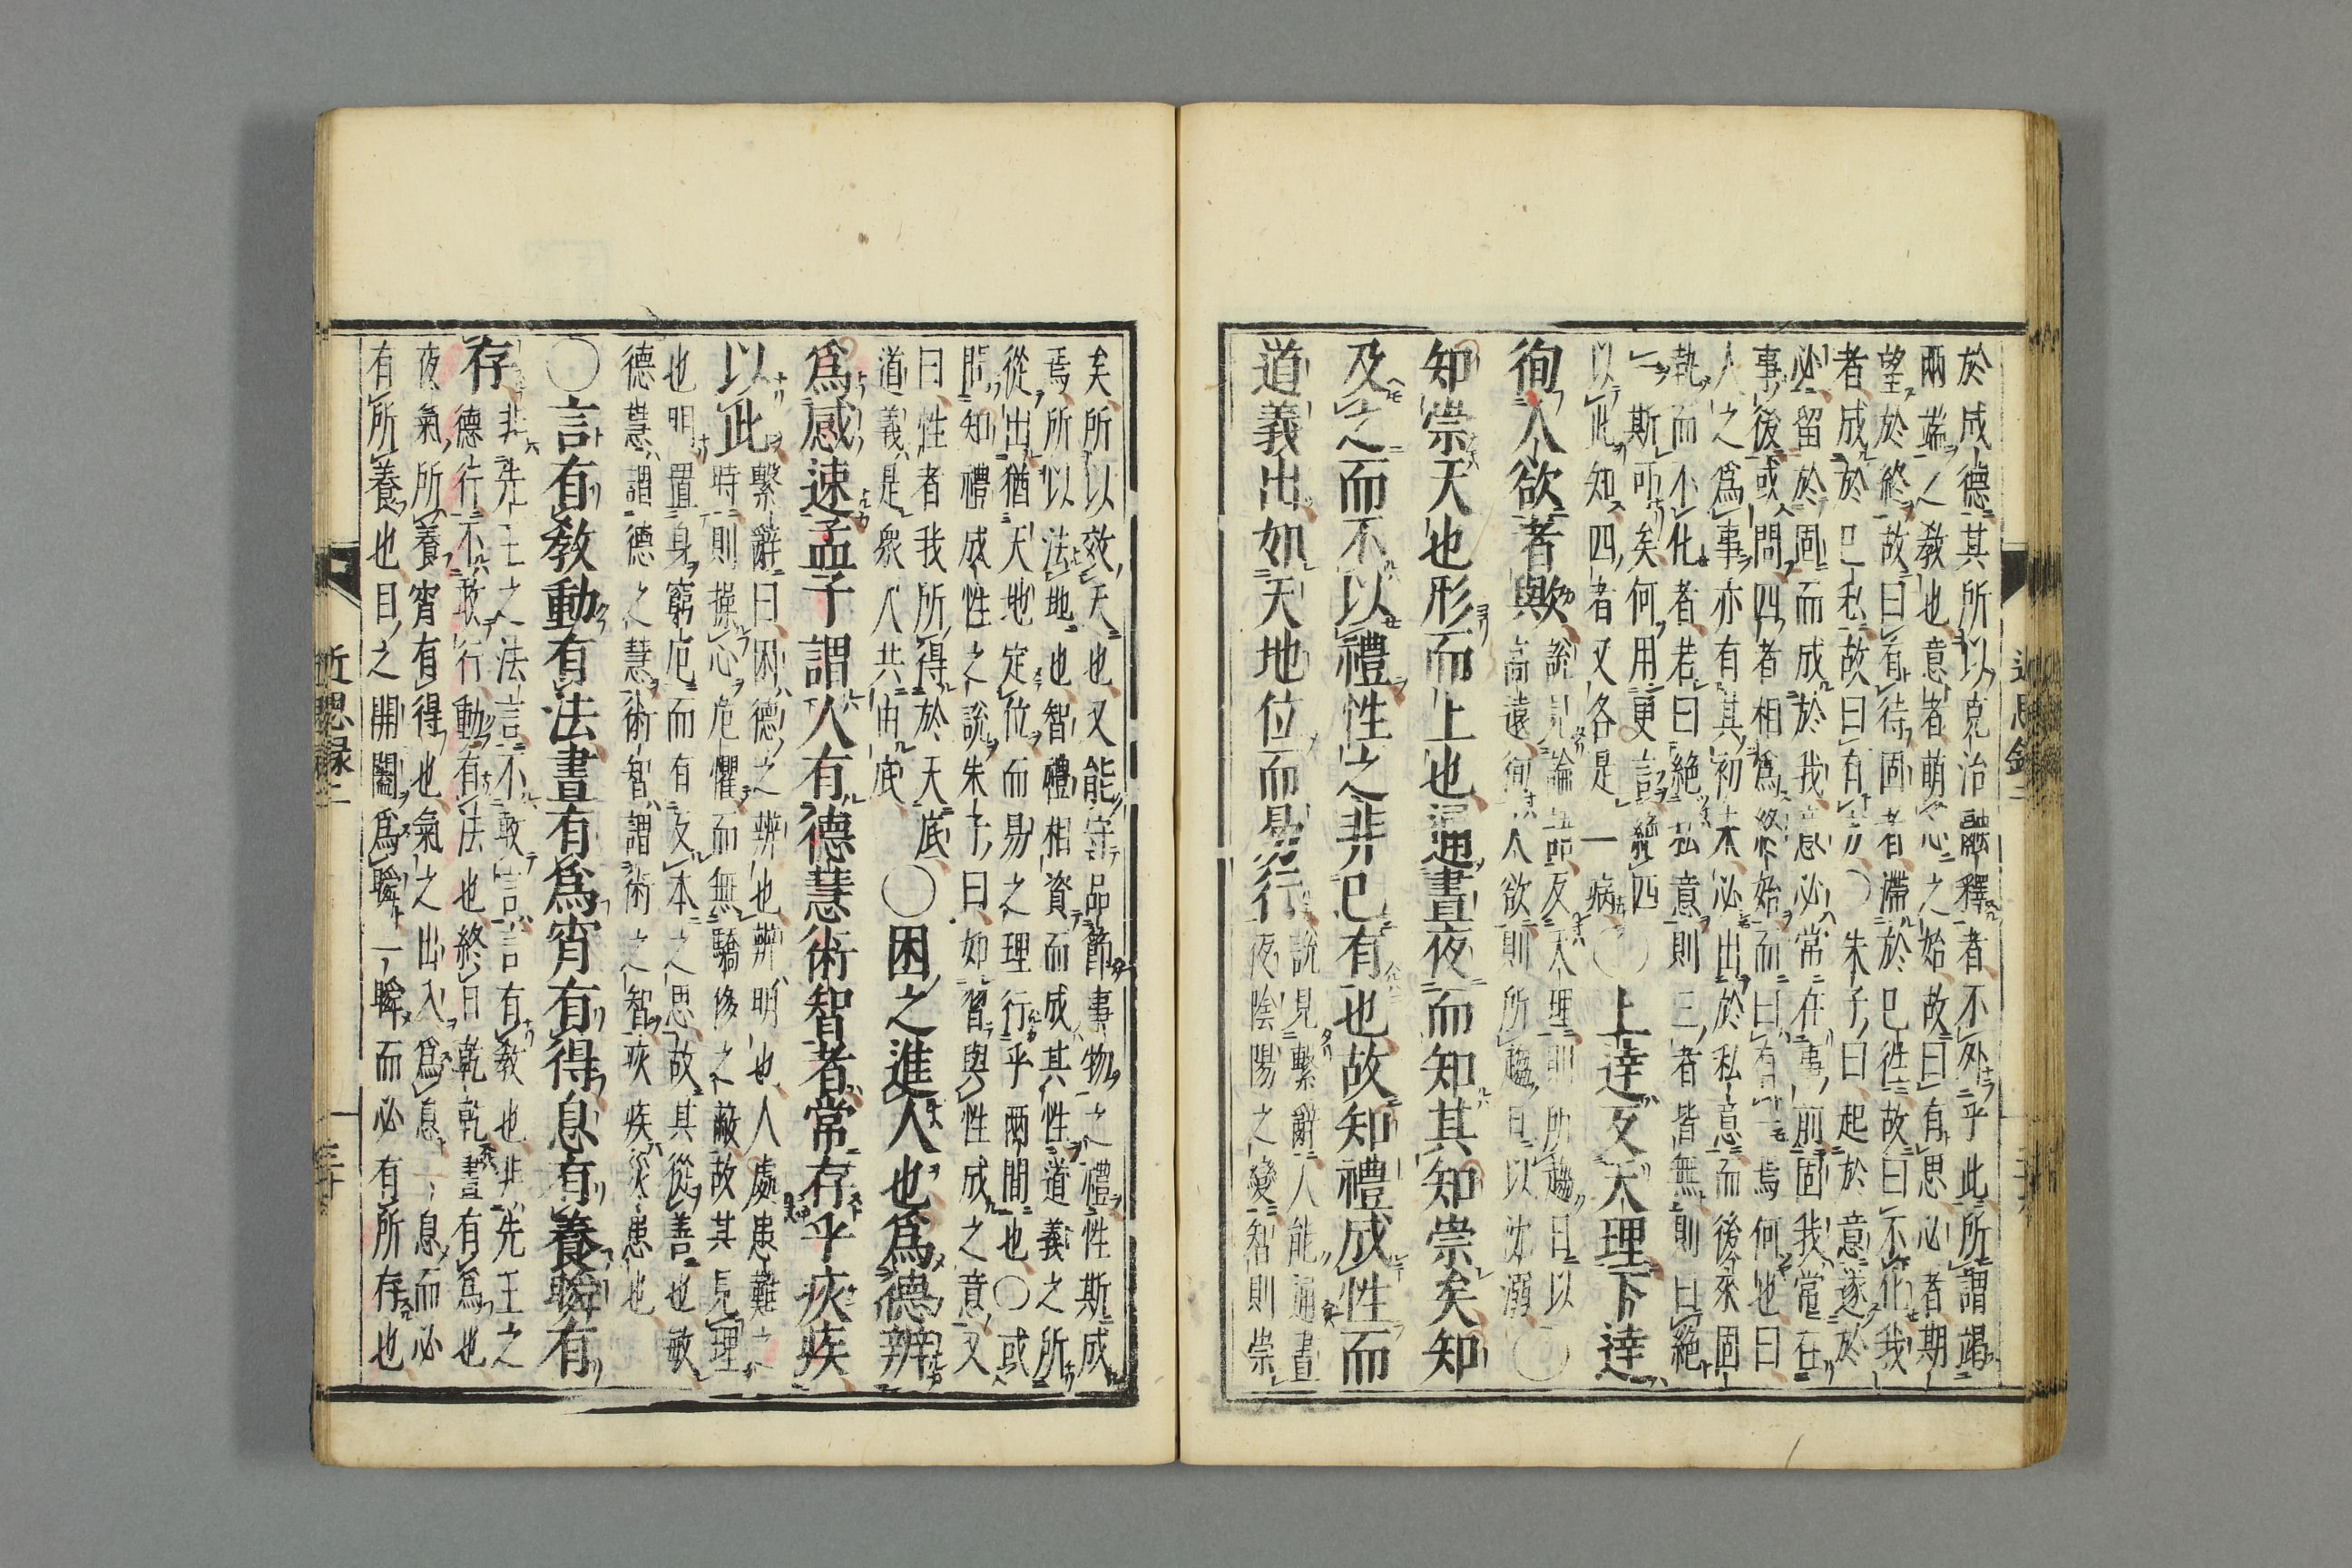 於成德其所以克治融釋者不外乎此所謂竭
兩端之教也意者萌心之始故曰有思必者期
望於終故曰有待固者滯於已徃故曰不化我
者成於已私故曰有方〇朱子曰起於意遂於
必留於固而成於我意必常在事前固我常在
事後或問四者相爲終始而曰有一焉何也曰
人之爲事亦有其初未必出於私意而後來固
執而不化者若曰絶私意則三者皆無則曰絶
一斯可矣何用更言絶四
以此知四者又各是一病〇上達反天理下達
徇人欲者歟
說見論語反天理則所趨日以
高遠徇人欲則所趨日以沈溺〇
知崇天也形而上也通晝夜而知其知崇矣知
及之而不以禮性之非已有也故知禮成性而
道義出如天地位而易行
說見繫辭人能通晝
夜陰陽之變智則崇
矣所以效天也又能守品節事物之禮性斯成
焉所以法地也智禮相資而成其性道義之所
從出猶天地定位而易之理行乎兩間也〇或
問知禮成性之說朱子曰如習與性成之意又
曰性者我所得於天底
道義是衆人共由底〇困之進人也爲德辨
爲感速孟子謂人有德慧術智者常存乎疢疾
以此
繫辭曰困德之辨也辨明也人處患難之
時則操心危懼而無驕侈之蔽故其見理
也明置身窮厄而有反本之思故其從善也敏
德慧謂德之慧術智謂術之智疢疾災患也
〇言有教動有法晝有爲宵有得息有養瞬有
存
非先王之法言不敢言言有教也非先王之
德行不敢行動有法也終日乾乾晝有爲也
夜氣所養宵有得也氣之出入爲息一息而必
有所養也目之開闔爲瞬一瞬而必有所存也
近思録二